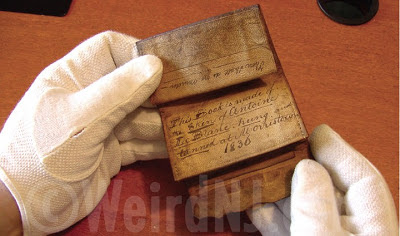 This Book is made of
the Skin of Antoine
Le Blanc, hung and
tanned at Morristown
©WeirdNJ